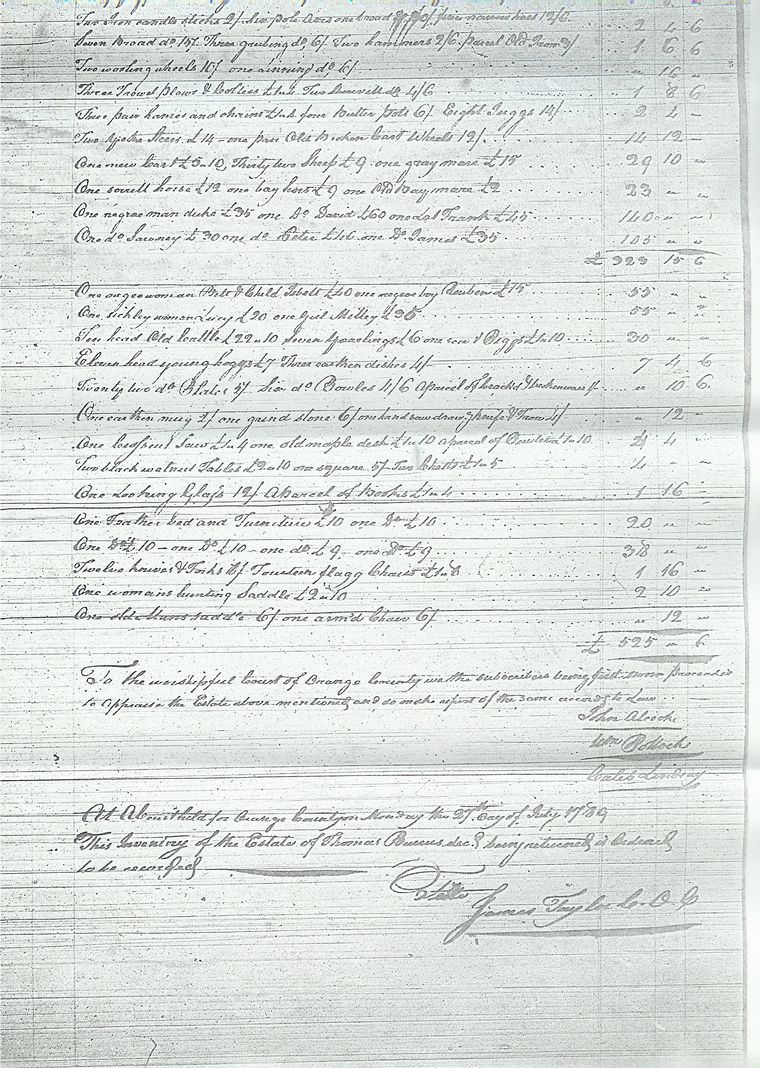 Two Iron candle sticks 2/ Six pole axes one broad five narrow hoes 12/6 2 4 6
Seven Broad do 15/ Three grubing do 6/ Two hammers 2/6 parcel Old Iron 3/ 1 6 6
Two wooling wheels 10/ one linning do 6/ " 16 "
Three Trowel plows & Coulters £1"4 Two 4/6 1 8 6
Three pair hames and chains £1"4 four Butter Pots 6/ Eight Juggs 14/ 2 4 "
Two Yoke Steers £14 - one pair Old Broken Cart Wheels 12/ 14 12 "
One new Cart £5"10 Thirty two Sheep £9 one gray mare £15 29 10 "
One sorrell horse £12 one bay horse £9 one Old Bay mare £2 23 " "
One negroe man duke £35 one Do David £60 one do Frank £45 140 " "
One do Sawney £30 one do Peter £40 one Do James £35 105 " "
£ 323 15 6
One negroe woman Bett & Child Isbell £40 one negroe boy Reuben £15 55 " "
One sickley woman Lucy £20 one Girl Milley £35 55 "
Ten head Old Cattle £22"10 Seven Yearlings £6 one sow & Piggs £1"10 30 " "
Eleven head young hoggs £7 Three earthen dishes 4/ 7 4 6
Twenty two do Plates 5/ Six do Bowles 4/6 a parcel of " 10 6
One earthen mug 2/ one grind stone 6/ one hand saw drawg knife & Frow 4/ " 12 "
One Crosscut Saw £1"4 one old maple desk £1"10 a parcel of Pewter £1"10 4 4 "
Two black walnut Tables £2"10 one square 5/ Two Chests £1"5 4 " "
One Looking Glass 12/ A Parcel of Books £1"4 1 16 "
One Feather bed and Furniture £10 one Do £10 20 " "
One Do £10 - one Do £10 - one do £9 - one Do £9 38 " "
Twelve knives & Forks 8/ Fourteen flagg Chairs £1"8 1 16 "
One womans hunting Saddle £2"10 2 10 "
One old Mans saddle 6/ one arm'd Chair 6/ " 12 "
£ 525 " 6
To the worshipful Court of Orange County we the subscribers being first sworn proceeded
to appraise the Estate above mentioned and do make report of the same according to Law
John Alcocke
Wm Pollock
Caleb Lindsay
At A Court held for Orange County on Monday the 27th day of July 1789
This Inventory of the Estate of Thomas Burrus decd being returned is Ordered
to be recorded
Teste
James Taylor C. O. C